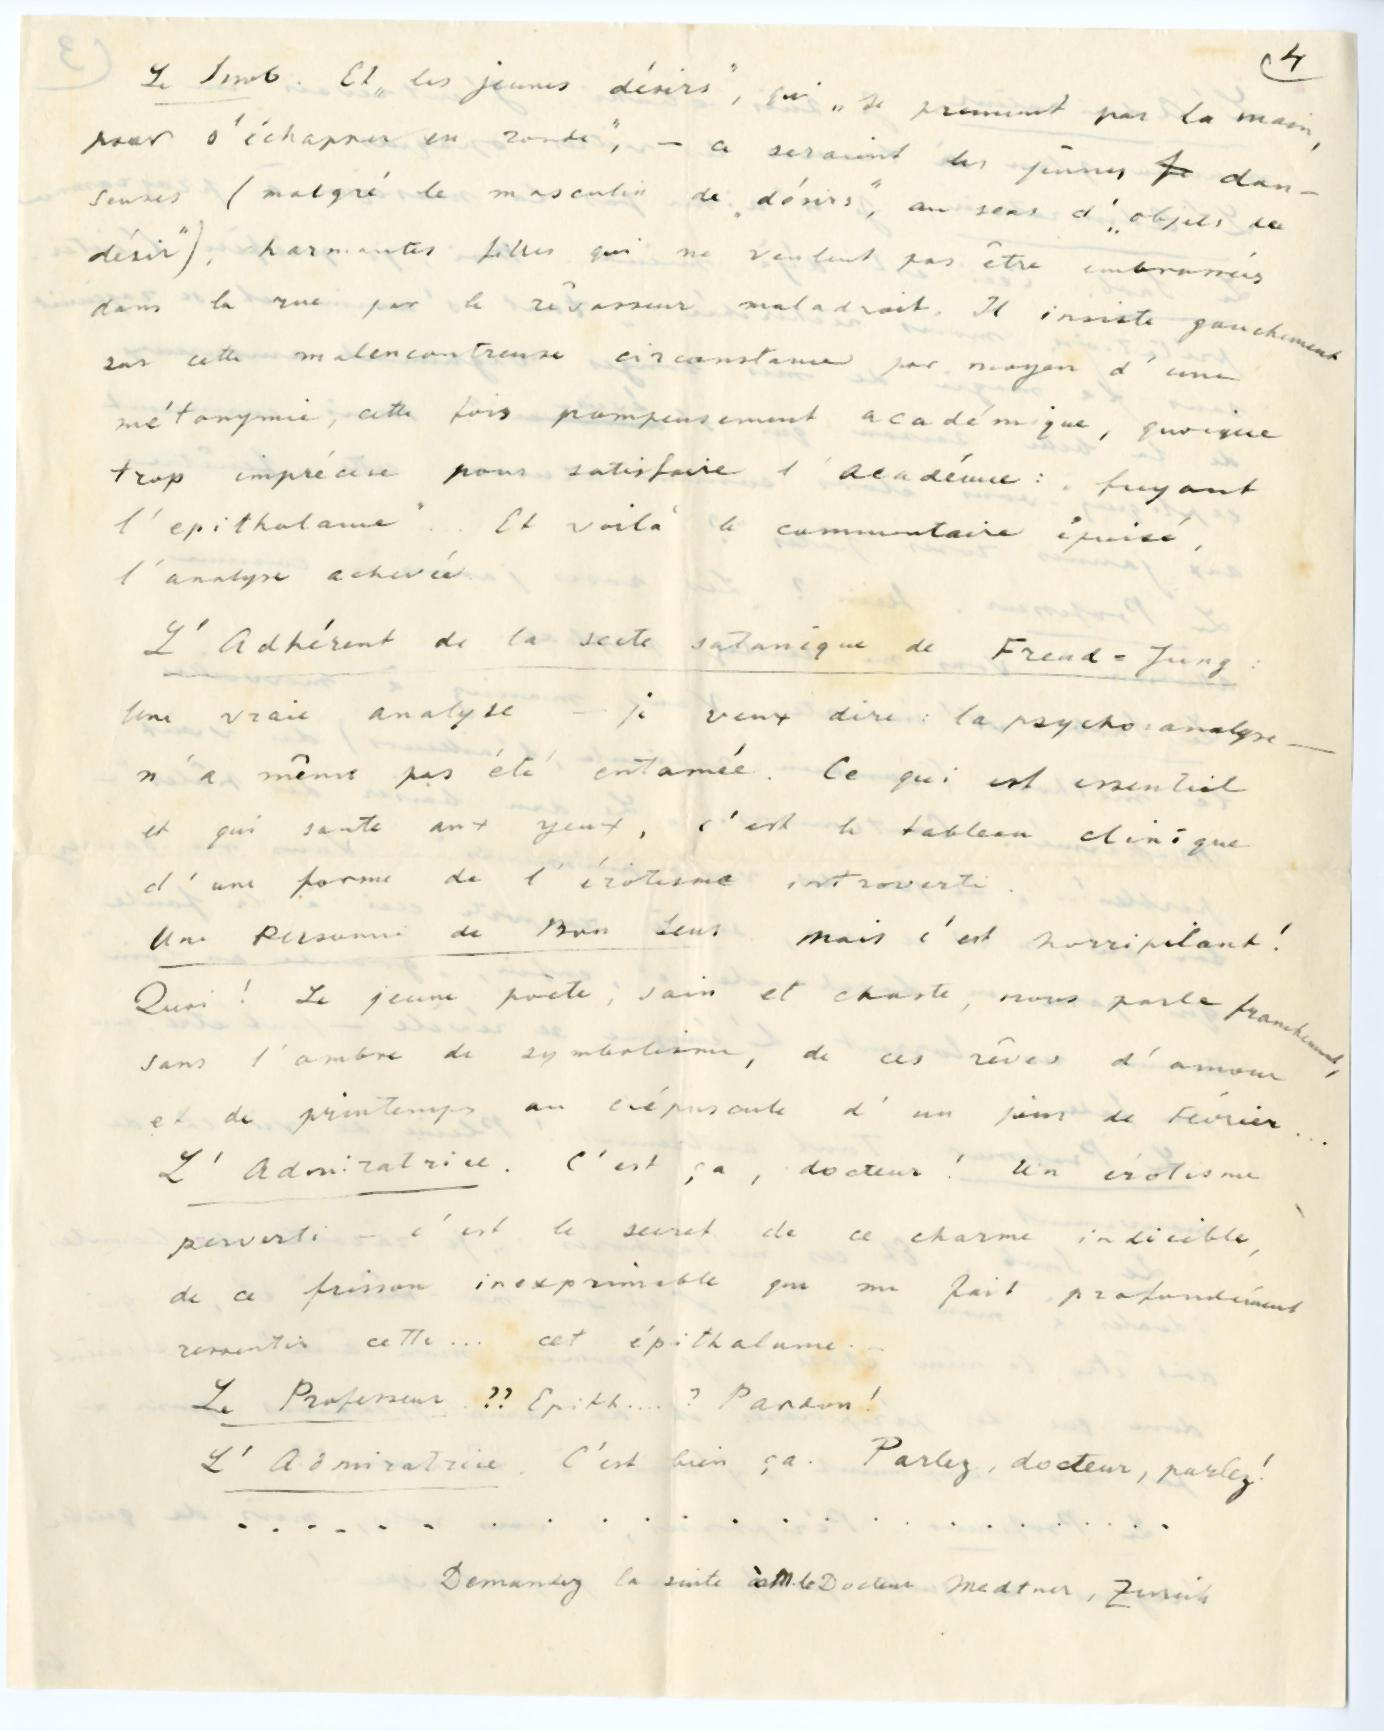 4
Le Snob. Et „les jeunes désirs”, qui „se prennent par la main,
pour s'échapper en ronde”, — ce seraient les jeunes dan-
seuses (malgré le masculin de „désirs”, au sens d'„objets de
désir”), charmantes filles qui ne veulent pas être embrassées
dans la rue par le rêvasseur maladroit. Il insiste gauchement
sur cette malencontreuse circonstance par moyen d'une
métonymie, cette fois pompeusement académique, quoique
trop imprécise pour satisfaire l'Académie: „fuyant
l'epithalame”... Et voilà le commentaire épuisé,
l'analyse achevée.
L'Adhérent de la secte satanique de Freud=Jung:
Une vraie analyse — je veux dire: la psycho-analyse —
n'a même pas été entamée. Ce qui est essentiel
et qui saute aux yeux, c'est le tableau clinique
d'une forme de l'érotisme introverti.
Une Personne de Bon Sens. Mais c'est horripilant!
Quoi! Le jeune poète, sain et chaste, nous parle franchement,
sans l'ombre de symbolisme, de ces rêves d'amour
et de printemps au crépuscule d'un jour de Février...
L'Admiratrice. C'est ça, docteur! Un érotisme
perverti — c'est le secret de ce charme indicible,
de ce frisson inexprimable que me fait profondément
ressentir cette... cet épithalame...
Le Professeur. ?? Epith....? Pardon!
L'Admiratrice. C'est bien ça. Parlez, docteur, parlez!
. . . . . . . . . . . . . . . . . . . . . .
Demandez la suite à M le Docteur Medtner, Zurich